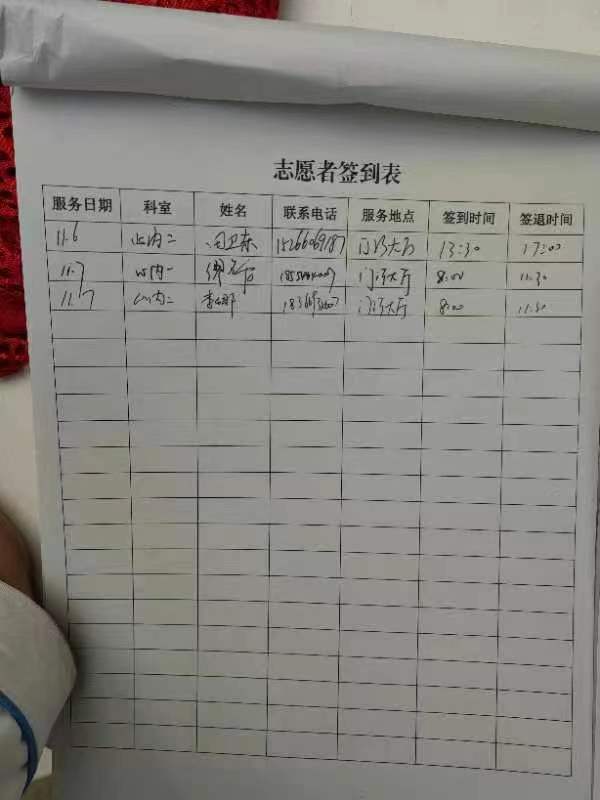 志愿者签到表
服务日期 科室 姓名 联系电话 服务地点 签到时间 签退时间
11.6 心内二 门诊大厅 13:30 17:00
11.7 心内一 门诊大厅 8:00 11:30
11.7 心内二 门诊大厅 8:00 11:30